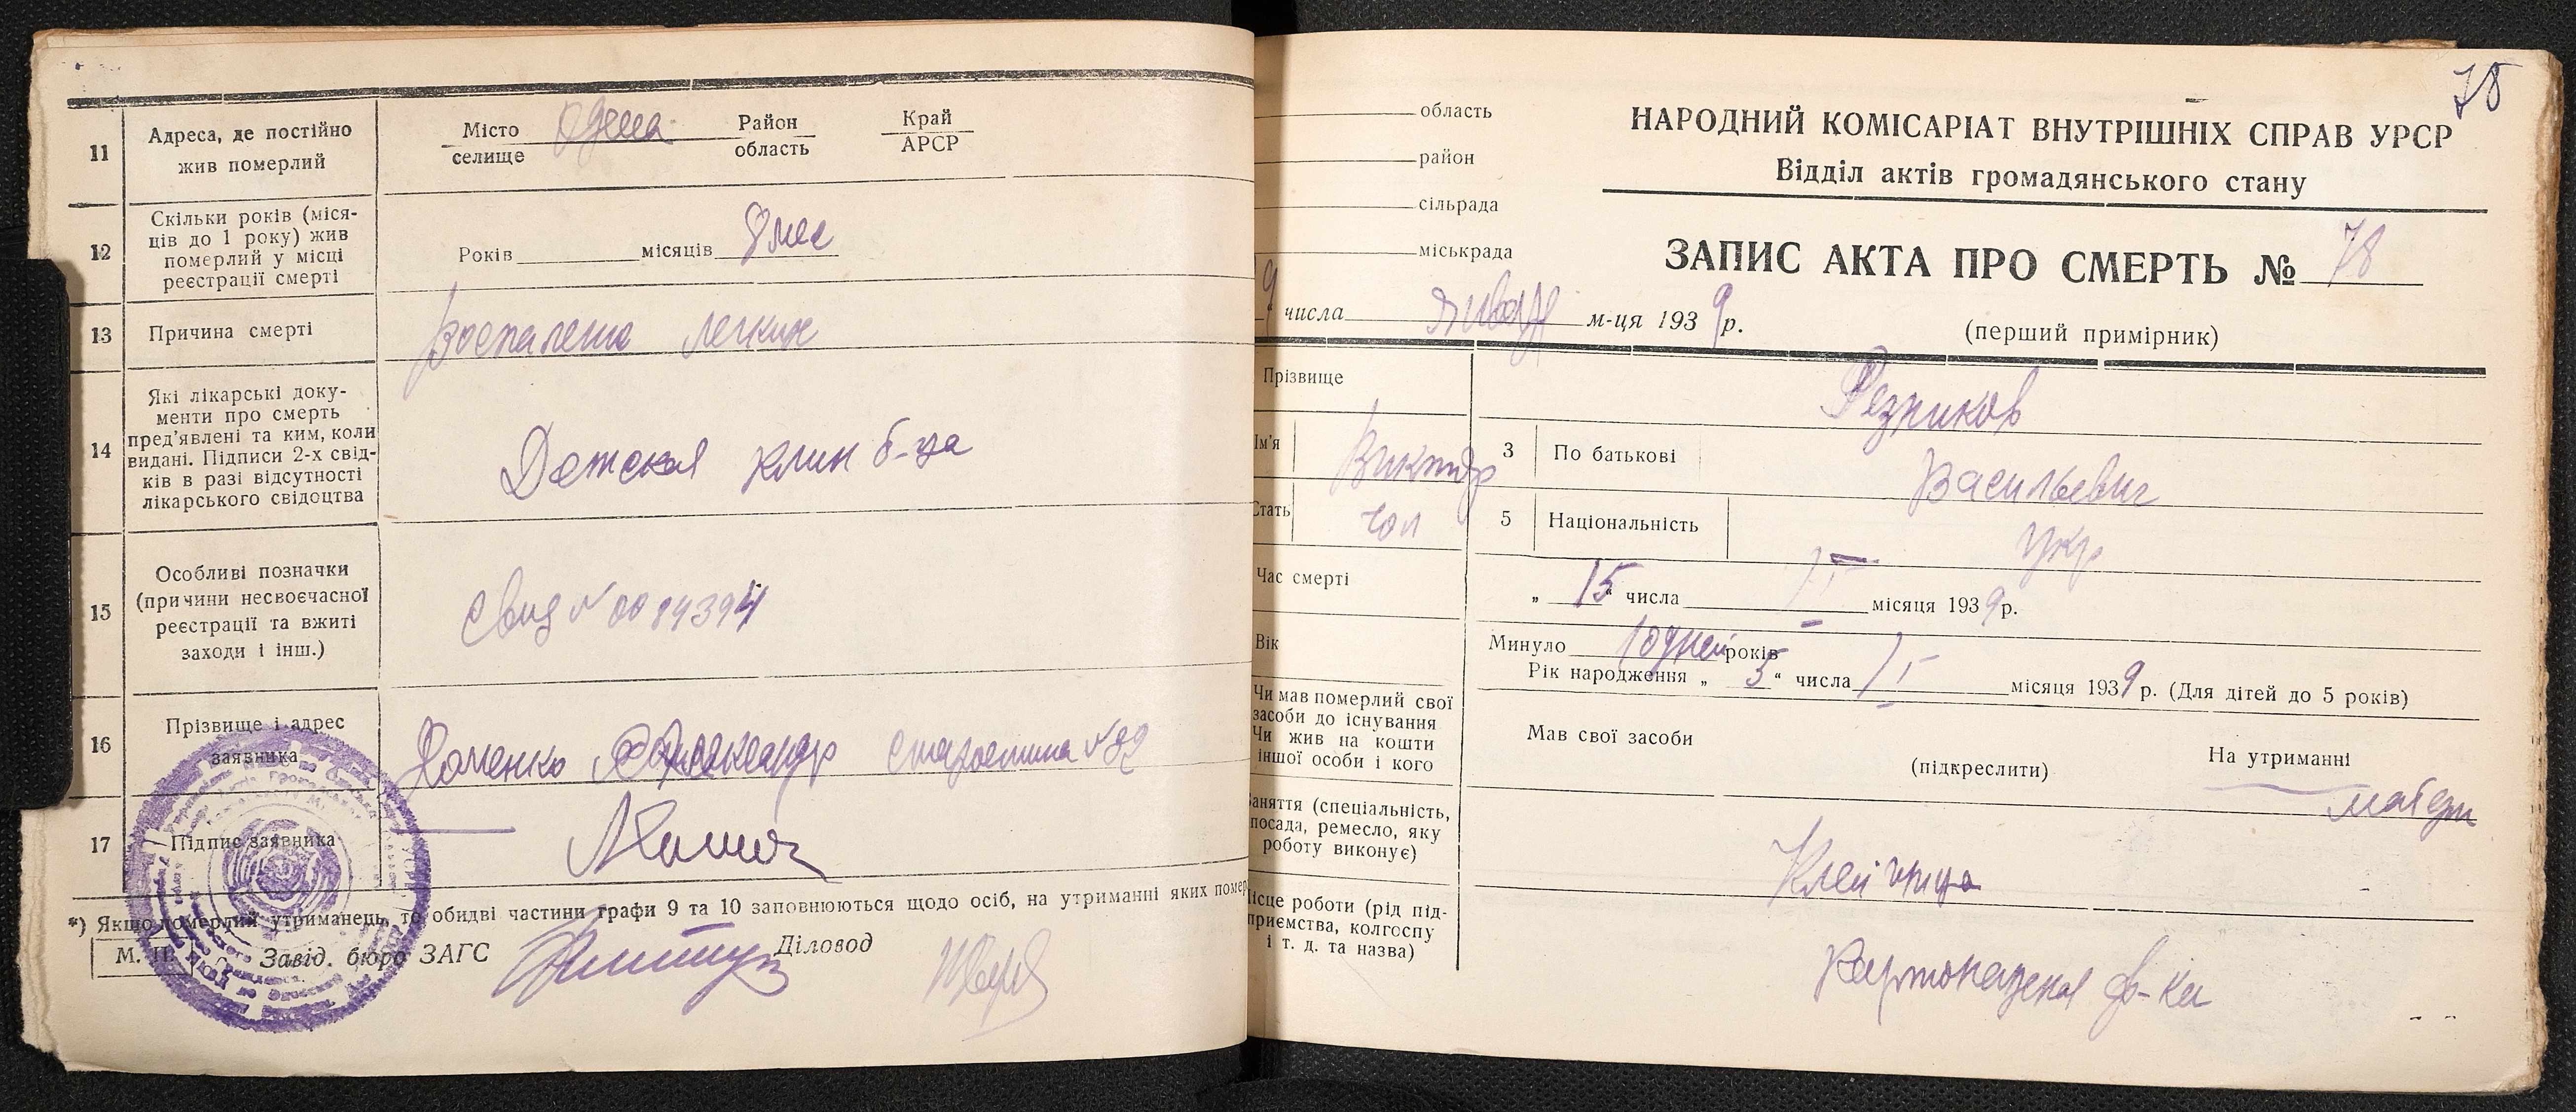 11
Адреса, де постійно
жив померлий
Місто Одесса Район Край
селище область АРСР
12
Скільки років (міся-
ців до 1 року) жив
померлий у місці
реєстрації смерті
Років місяців 8 мес
13
Причина смерті
Воспаление легких
14
Які лікарські доку-
менти про смерть
пред'явлені та ким, коли
видані. Підписи 2-х свід-
ків в разі відсутності
лікарського свідоцтва
Детская клин б-ца
15
Особливі позначки
(причини несвоєчасної
реєстрації та вжиті
заходи і інш.)
Свид № 0084394
16
Прізвище і адрес
заявника
Александр
17
Підпис заявника
*) Якщо померлий утриманець, то обидві частини графи 9 та 10 заповнюються щодо осіб, на утриманні яких помер
М. П. Завід. бюро ЗАГС Діловод
78
область
район
сільрада
міськрада
НАРОДНИЙ КОМІСАРІАТ ВНУТРІШНІХ СПРАВ УРСР
Відділ актів громадянського стану
ЗАПИС АКТА ПРО СМЕРТЬ № 78
9 числа Января м-ця 1939 р.
(перший примірник)
Прізвище
Резников
Ім'я Виктор 3 По батькові Васильевич
Стать чол 5 Національність укр
Час смерті
„ 15 “ числа I місяця 1939 р.
Вік
Минуло 10 дней років
Рік народження „ 5 “ числа I місяця 1939 р. (Для дітей до 5 років)
Чи мав померлий свої
засоби до існування
Чи жив на кошти
іншої особи і кого
Мав свої засоби
(підкреслити)
На утриманні
матери
Заняття (спеціальність,
посада, ремесло, яку
роботу виконує)
Клейщица
Місце роботи (рід під-
приємства, колгоспу
і т. д. та назва)
Картонажная ф-ка